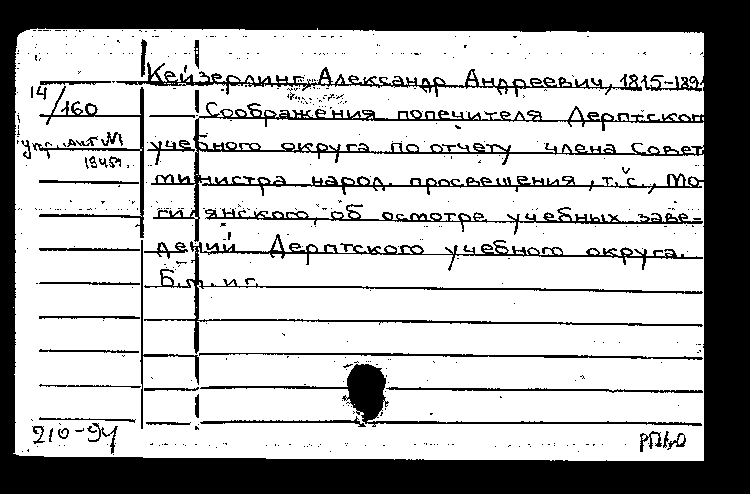 Кейзерлинг Александр Андреевич, 1815-1891
14/160
Соображения попечителя Дерптского
учебного округа по отчету члена Совет
министра народ. просвещения, т.с., Мо-
гилянского, об осмотре учебных заве-
дений Дерптского учебного округа.
Б.м. и г.
210-94